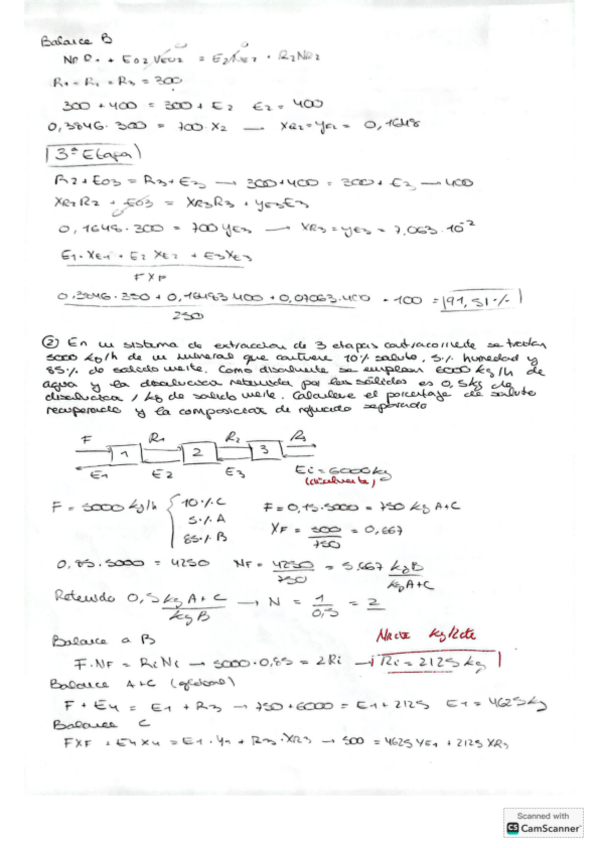 Balance B
R1 = R2 = R3 = 300
300 + 400 = 300 + E2 E2 = 400
0,3846 · 300 = 700 · X2 → XR2 = YE2 = 0,1648
3ª Etapa
R2 + E03 = R3 + E3 → 300 + 400 = 300 + E3 → 400
XR2 R2 + E03 = XR3 R3 + YE3 E3
0,1648 · 300 = 700 YE3 → XR3 = YE3 = 7,063 · 10⁻²
E1 · XE1 + E2 XE2 + E3 XE3
F XF
0,3846 · 250 + 0,16483 400 + 0,07063 · 400 · 100 = 91,51 %
250
② En un sistema de extracción de 3 etapas contracorriente se tratan
5000 kg/h de un mineral que contiene 10% soluto, 5% humedad y
85% de sólido inerte. Como disolvente se emplean 6000 kg/h de
agua y la disolución retenida por los sólidos es 0,5 kg de
disolución / kg de sólido inerte. Calculese el porcentaje de soluto
recuperado y la composición de refinado separado
F R1 R2 R3
1 2 3
E1 E2 E3 Ei = 6000 kg
(disolvente)
F = 5000 kg/h { 10% C F = 0,15 · 5000 = 750 kg A+C
5% A XF = 500/750 = 0,667
85% B
0,85 · 5000 = 4250 NF = 4250/750 = 5,667 kg B/kg A+C
Retenido 0,5 kg A+C/kg B → N = 1/0,5 = 2
Balance a B kg/
F · NF = Ri Ni → 5000 · 0,85 = 2Ri → Ri = 2125 kg
Balance A+C (global)
F + E4 = E1 + R3 → 750 + 6000 = E1 + 2125 E1 = 4625 kg
Balance C
F XF + E4 X4 = E1 · Y1 + R3 · XR3 → 500 = 4625 YE1 + 2125 XR3
Scanned with
CS CamScanner